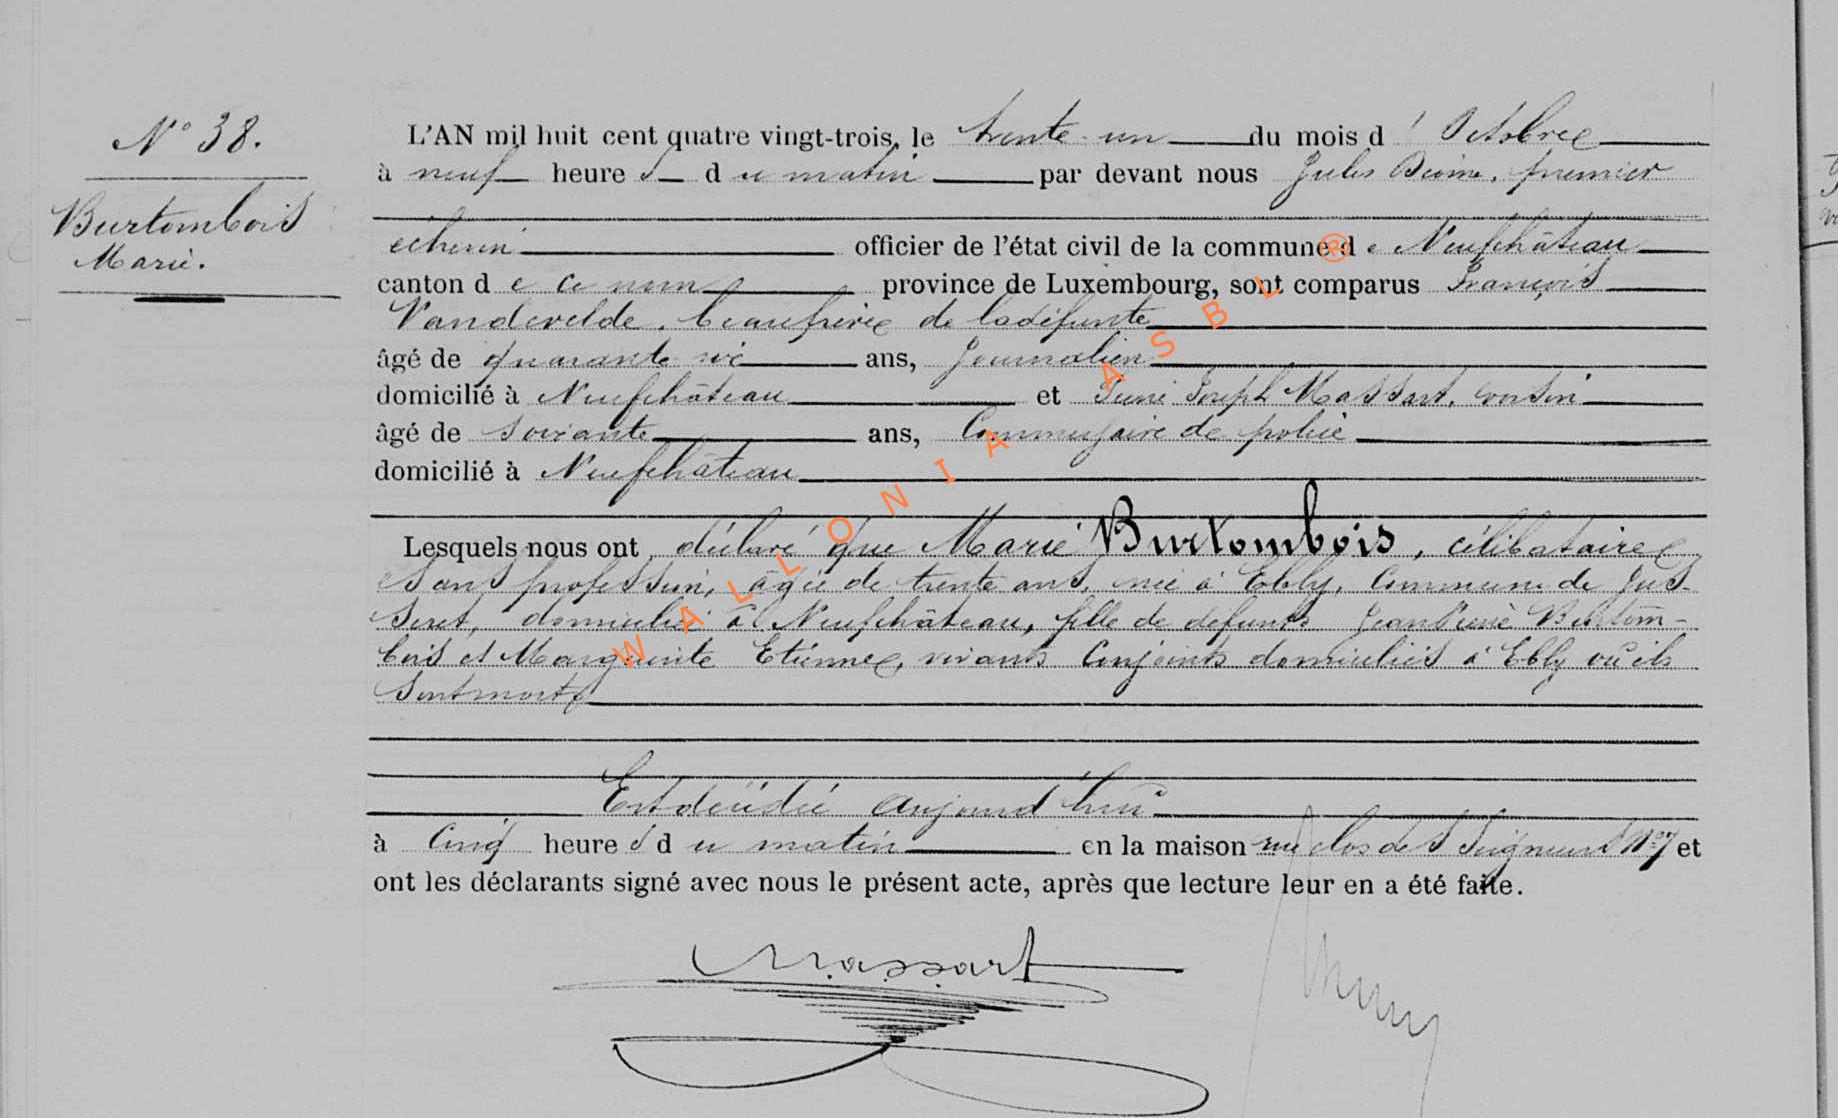 N° 38.
Burtombois
Marie.
L'AN mil huit cent quatre vingt-trois, le trente un du mois d' Octobre
à neuf heures du matin par devant nous Jules premier
échevin officier de l'état civil de la commune de Neufchâteau
canton de ce nom province de Luxembourg, sont comparus François
Vandevelde, beaufrère de la défunte
âgé de quarante six ans, Journalier
domicilié à Neufchâteau et Pierre Joseph Massart, voisin
âgé de soixante ans, Commissaire de police
domicilié à Neufchâteau
Lesquels nous ont déclaré que Marie Burtombois, célibataire
sans profession, âgée de trente ans, née à Ebly, Commune de Jus-
seret, domiciliée à Neufchâteau, fille de défunts Jean Pierre Burtom-
bois et Marguerite Etienne, vivants Conjoints domiciliés à Ebly où ils
sont morts
Est décédée aujourd'hui
à Cinq heures du matin en la maison rue clos des Seigneurs N° 7 et
ont les déclarants signé avec nous le présent acte, après que lecture leur en a été faite.
Massart
WALLONIA ASBL ®